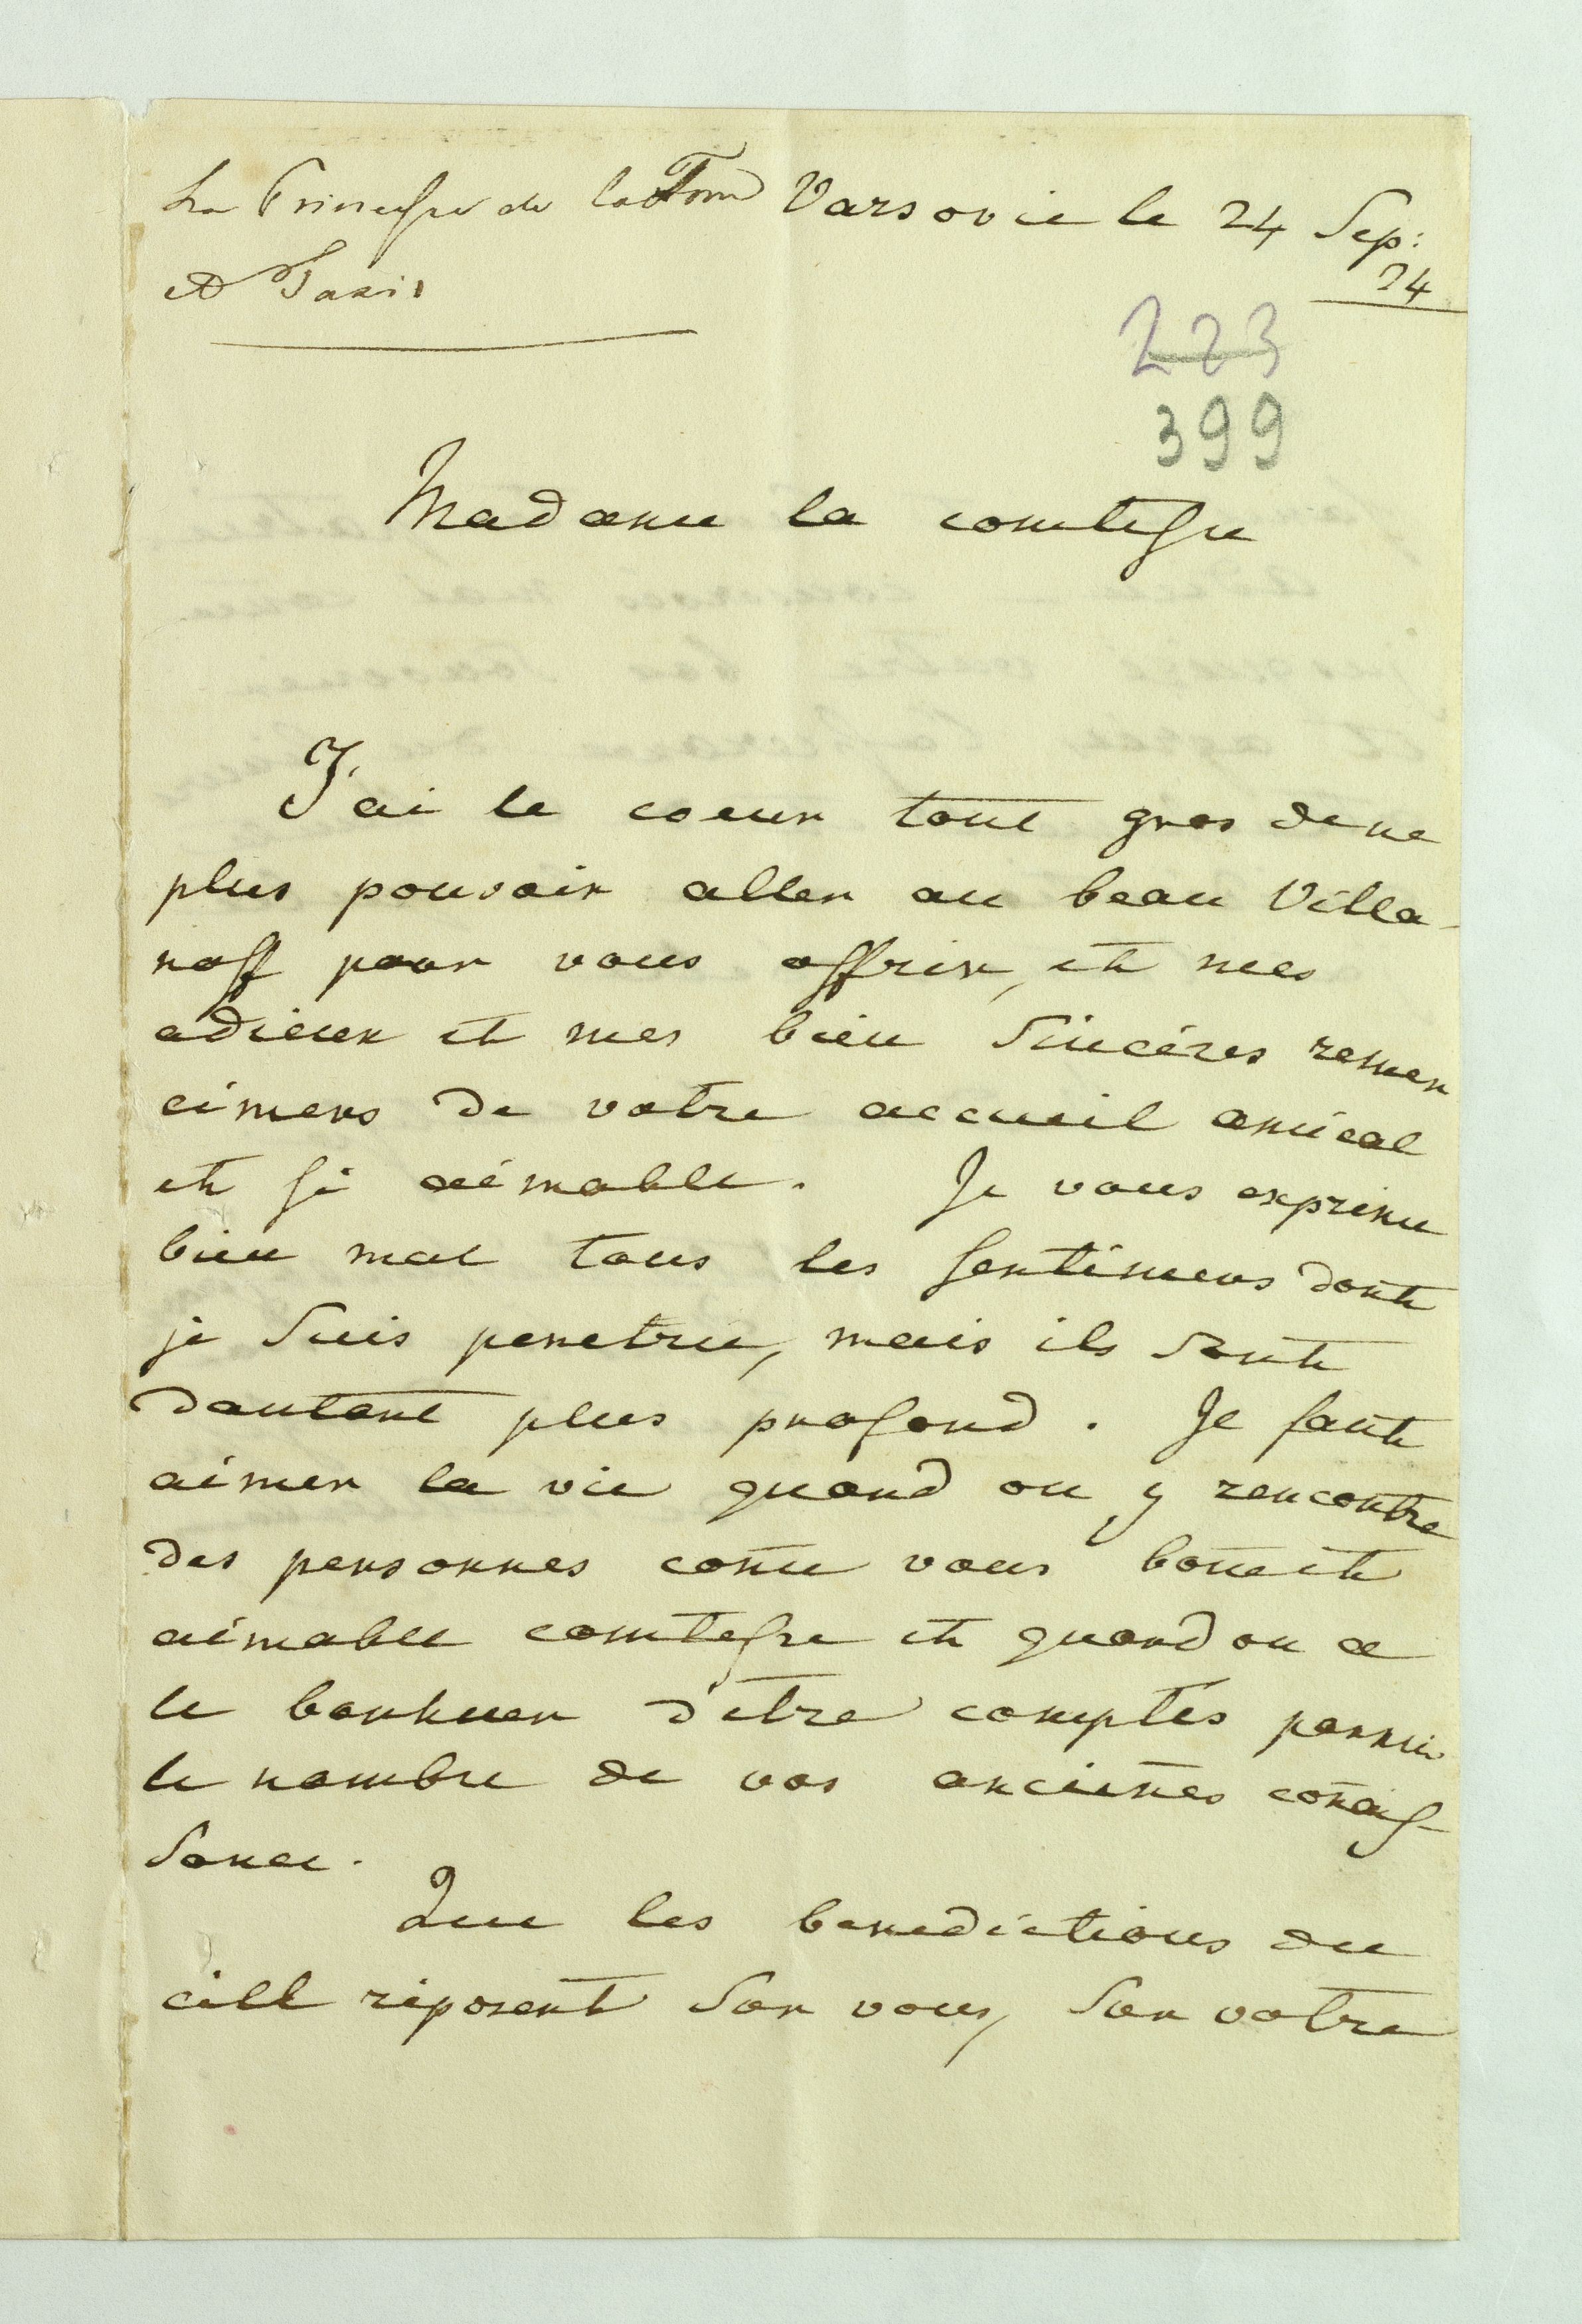 La Princesse de la Tour Varsovie le 24 Sep:
et Taxis 24
223
399
Madame la comtesse
J'ai le coeur tout gros de ne
plus pouvoir aller au beau Villa-
noff pour vous offrir, et mes
adieux et mes bien sincéres remer
cimens de votre accueil amical
et si aimable. Je vous exprime
bien mal tous les sentimens dont
je suis penetrée, mais ils sont
dautant plus profond. Je faut
aimer la vie quand on y rencontre
des personnes come vous bone et
aimable comtesse et quand on a
le bonheur d'etre comptés parmi
le nombre de vos ancienes conais-
sance.
Que les benedictions du
ciell réposent sur vous, sur votre